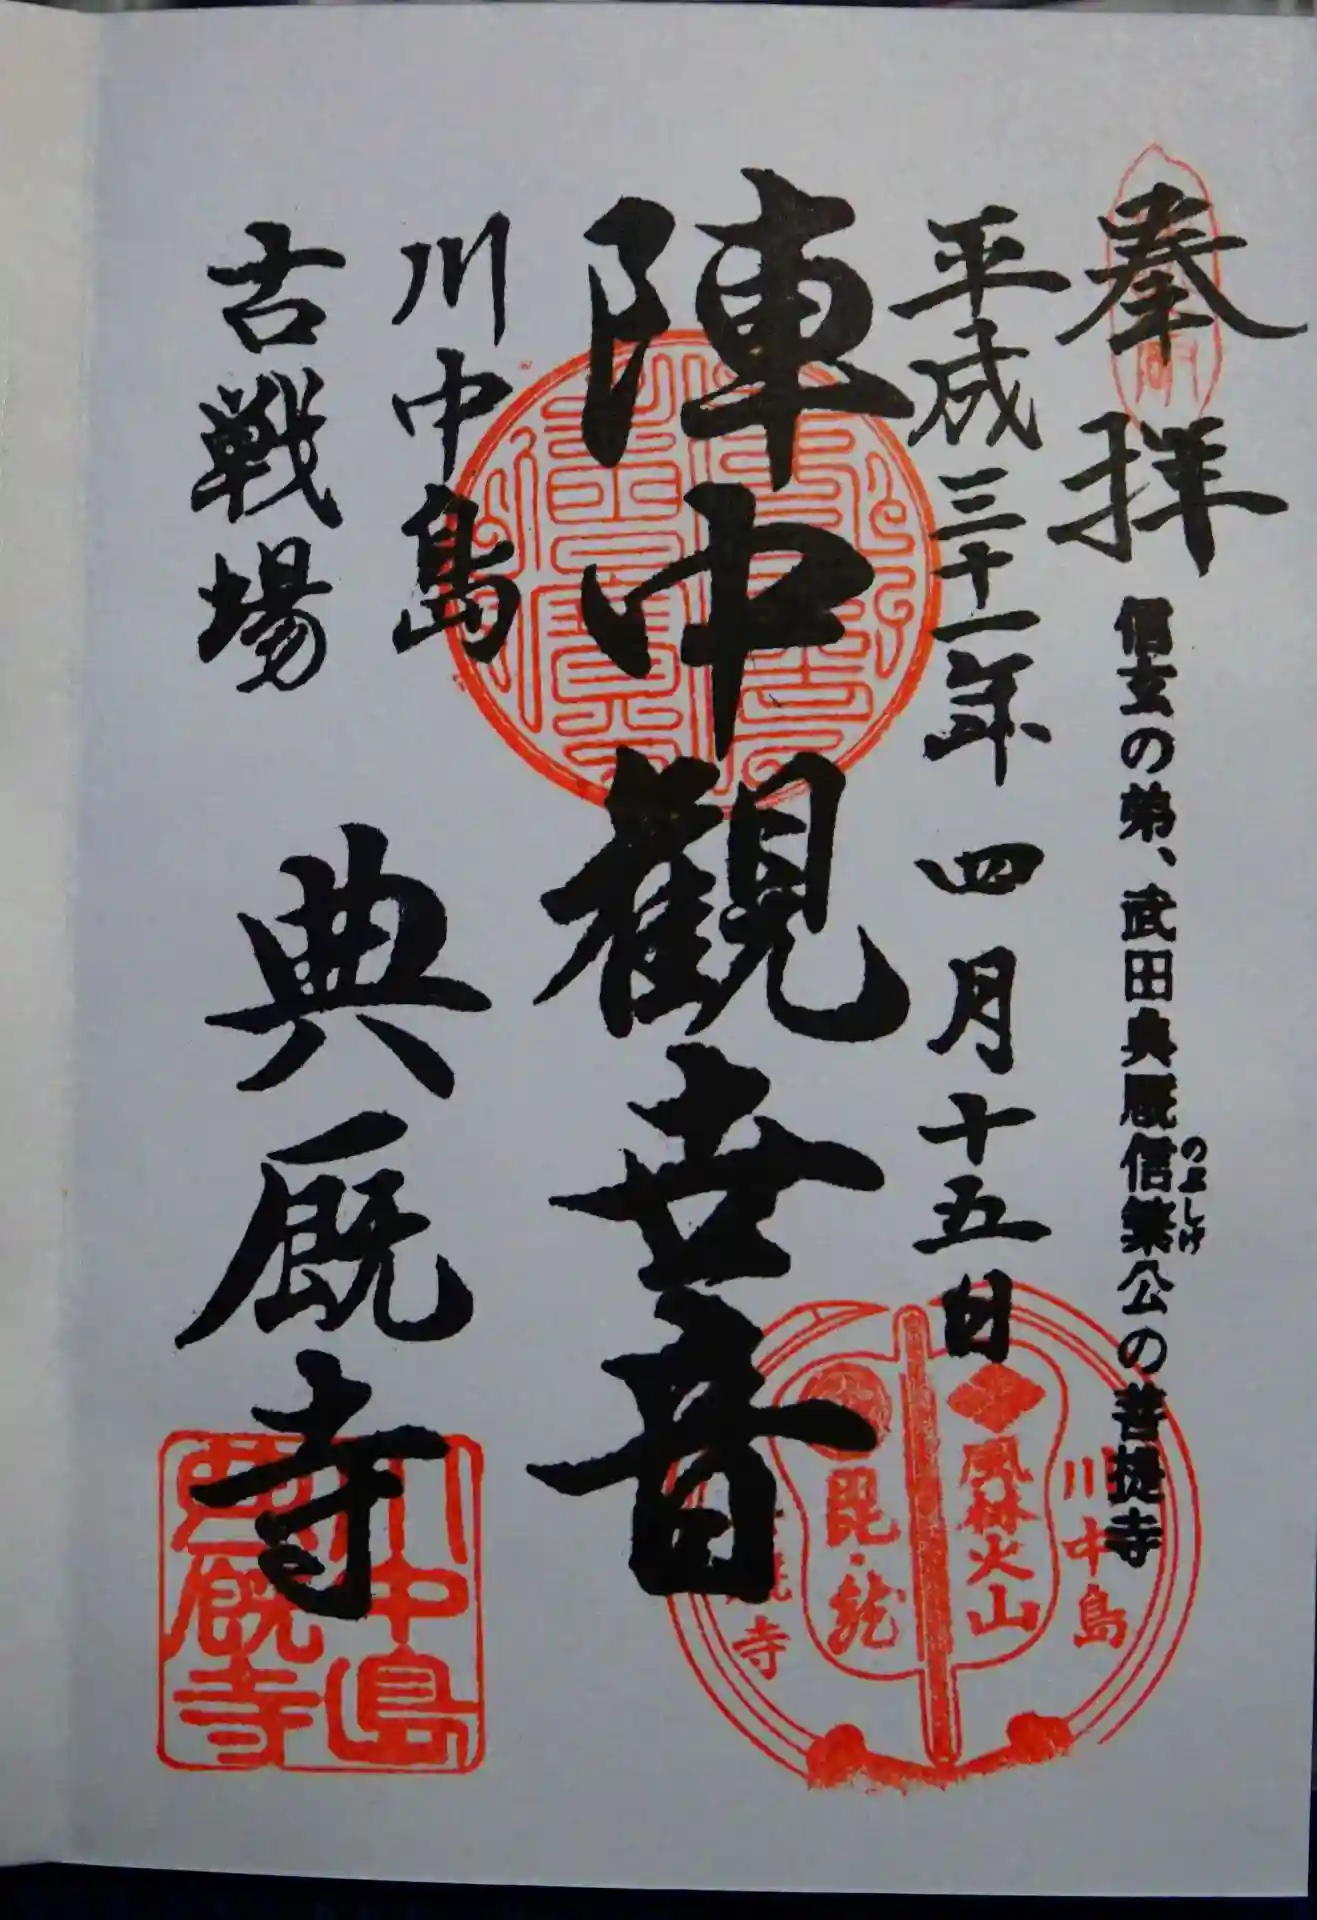 奉拝
信玄の弟、武田典厩信繁公の菩提寺
のぶしげ
平成三十一年 四月十五日
陣中観世音
川中島
古戦場
典厩寺
川中島
風林火山
毘・龍
寺
川中島
典厩寺